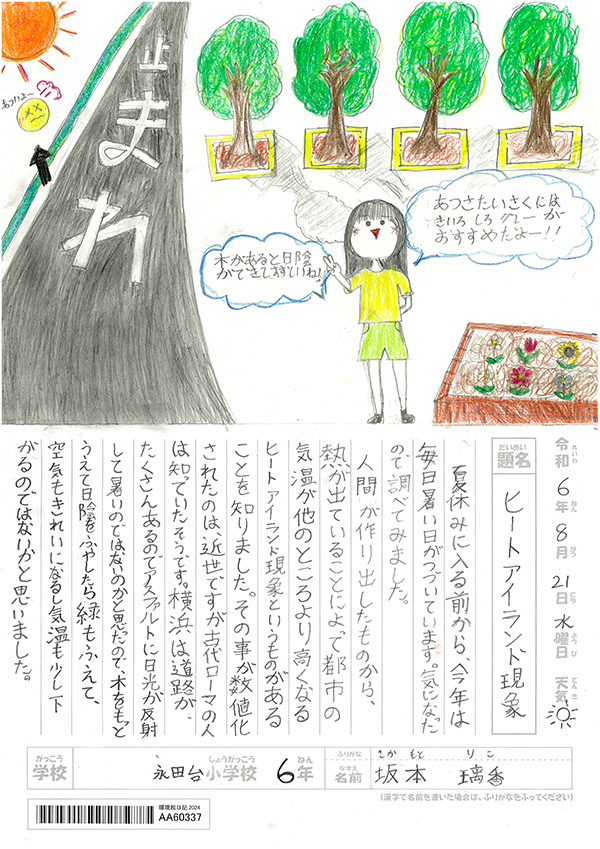 止まれ
あついよ〜
あつさたいさくには
きいろ しろ グレーが
おすすめだよー!!
木があると日陰
ができてすずしいね!
令和 れいわ 6年 ねん 8月 がつ 21日 にち 水曜日 ようび 天気 てんき
だいめい
題名
ヒートアイランド現象
夏休みに入る前から、今年は
毎日暑い日がつづいています。気になった
ので調べてみました。
人間が作り出したものから、
熱が出ていることによって都市の
気温が他のところより高くなる
ヒートアイランド現象というものがある
ことを知りました。その事が数値化
されたのは、近世ですが古代ローマの人
は知っていたそうです。横浜は道路が、
たくさんあるのでアスファルトに日光が反射
して暑いのではないのかと思ったので、木をもっと
うえて日陰をふやしたら緑もふえて、
空気もきれいになるし気温も少し下
がるのではないかと思いました。
がっこう
学校
永田台 小学校 しょうがっこう 6年 ねん
ふりがな さか もと り こ
なまえ
名前 坂本 璃香
(漢字で名前を書いた場合は、ふりがなをふってください)
環境絵日記 2024
AA60337